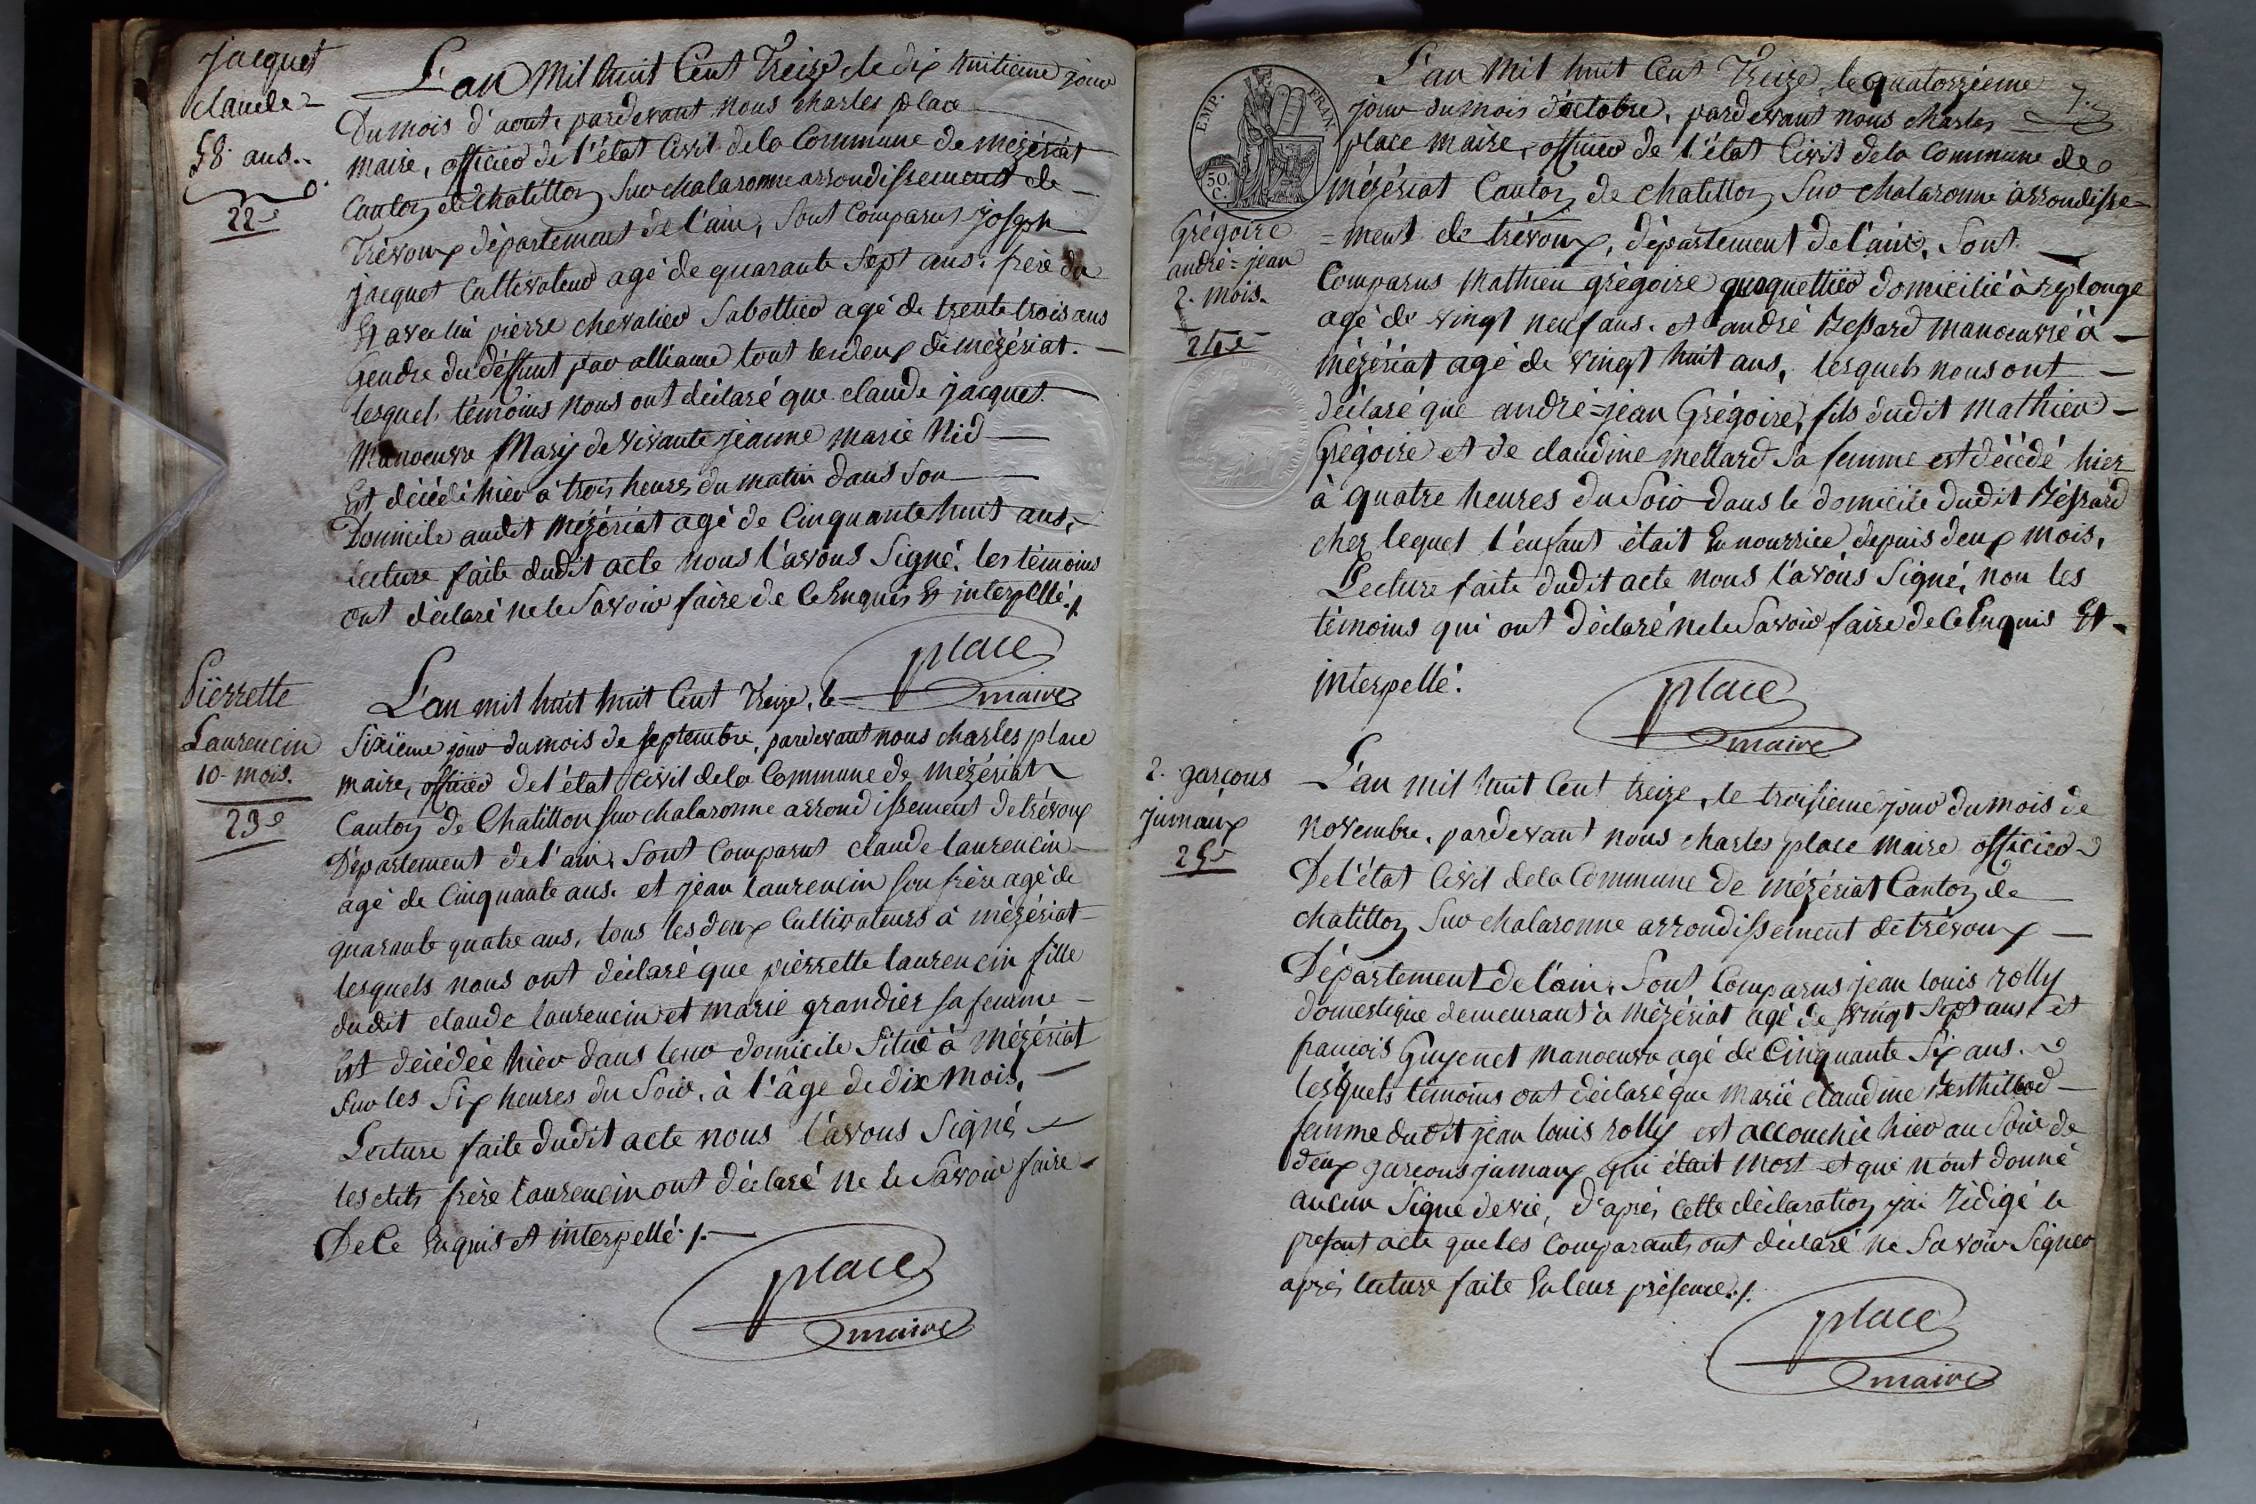 Jacquet
claude
58. ans.
22e
L'an mil huit Cent Treize, le dix huitieme jour
Du mois d'aout, pardevant nous charles place
maire, officier de l'état Civil de la Commune de mézériat
Canton de Chatillon Sur chalaronne arrondissement de
Trévoux département de l'ain, Sont Comparus joseph
jacquet Cultivateur agé de quarante Sept ans. frère du
pierre chevalier Sabottier agé de trente trois ans
Gendre du déffunt par alliance tout les deux de mézériat.
lesquels témoins nous ont déclaré que claude jacquet
Manoeuvre Mary de vivante jeanne marie Nid
Est décédé hier à trois heures du matin dans Son
Domicile audit mézériat agé de Cinquante huit ans,
lecture faite dudit acte nous l'avons Signé. les témoins
ont déclaré ne le Savoir faire de Ce Enquis Et interpellé./.
place
maire
Pierrette
Laurencin
10 mois.
23e
L'an mil huit huit Cent Treize, le
Sixieme jour du mois de septembre, pardevant nous charles place
maire, officier de l'état Civil de la Commune de mézériat
Canton de Chatillon sur chalaronne arrondissement de trévoux
Département de l'ain, Sont Comparut claude laurencin
agé de Cinquante ans. et jean laurencin son frère agé de
quarante quatre ans, tous les deux Cultivateurs à mézériat
lesquels nous ont déclaré que pierrette laurencin fille
dudit claude laurencin et marie grandier sa femme
Est décédée hier dans leur domicile Situé à Mézériat
Sur les Six heures du Soir, à l'âge de dix mois,
Lecture faite dudit acte nous l'avons Signé
les dits frère laurencin ont déclaré ne le Savoir faire
De Ce Enquis et interpellé./.
place
maire
EMP. FRAN.
50 C.
7.
Grégoire
andré=jean
2. mois.
24e
L'an mil huit Cent Treize, le quatorzieme
jour du mois d'octobre, pardevant nous charles
place maire, officier de l'état Civil de la Commune de
mézériat Canton de chatillon Sur chalaronne arrondisse-
=ment de trévoux, département de l'ain, Sont
Comparus Mathieu grégoire domicilié à replonge
agé de vingt neuf ans. et andré manoeuvre à
mézériat agé de vingt huit ans, lesquels nous ont
déclaré que andré=jean Grégoire, fils dudit mathieu
Grégoire et de claudine mettard Sa femme est décédé hier
à quatre heures du Soir dans le domicile dudit
chez lequel l'enfant était En nourrice, depuis deux mois,
Lecture faite dudit acte nous l'avons Signé, non les
témoins qui ont déclaré ne le Savoir faire de Ce Enquis Et
interpellé.
place
maire
2. garçons
jumaux
25e
L'an mil huit Cent treize, le troisieme jour du mois de
novembre, pardevant nous charles place maire officier
De l'état Civil de la Commune de mézériat Canton de
chatillon Sur chalaronne arrondissement de trévoux
Département de l'ain, Sont Comparus jean louis rolly
domestique demeurant à Mézériat agé de vingt Sept ans et
françois Guyenet manoeuvre agé de Cinquante Six ans.
lesquels témoins ont déclaré que marie claudine
femme dudit jean louis rolly est accouchée hier au Soir de
deux garçons jumaux qui était mort et qui n'ont donné
aucun Signe de vie, d'après cette déclaration j'ai rédigé le
présent acte que les Comparants ont déclaré ne Savoir Signer
après lecture faite En leur présence./.
place
maire